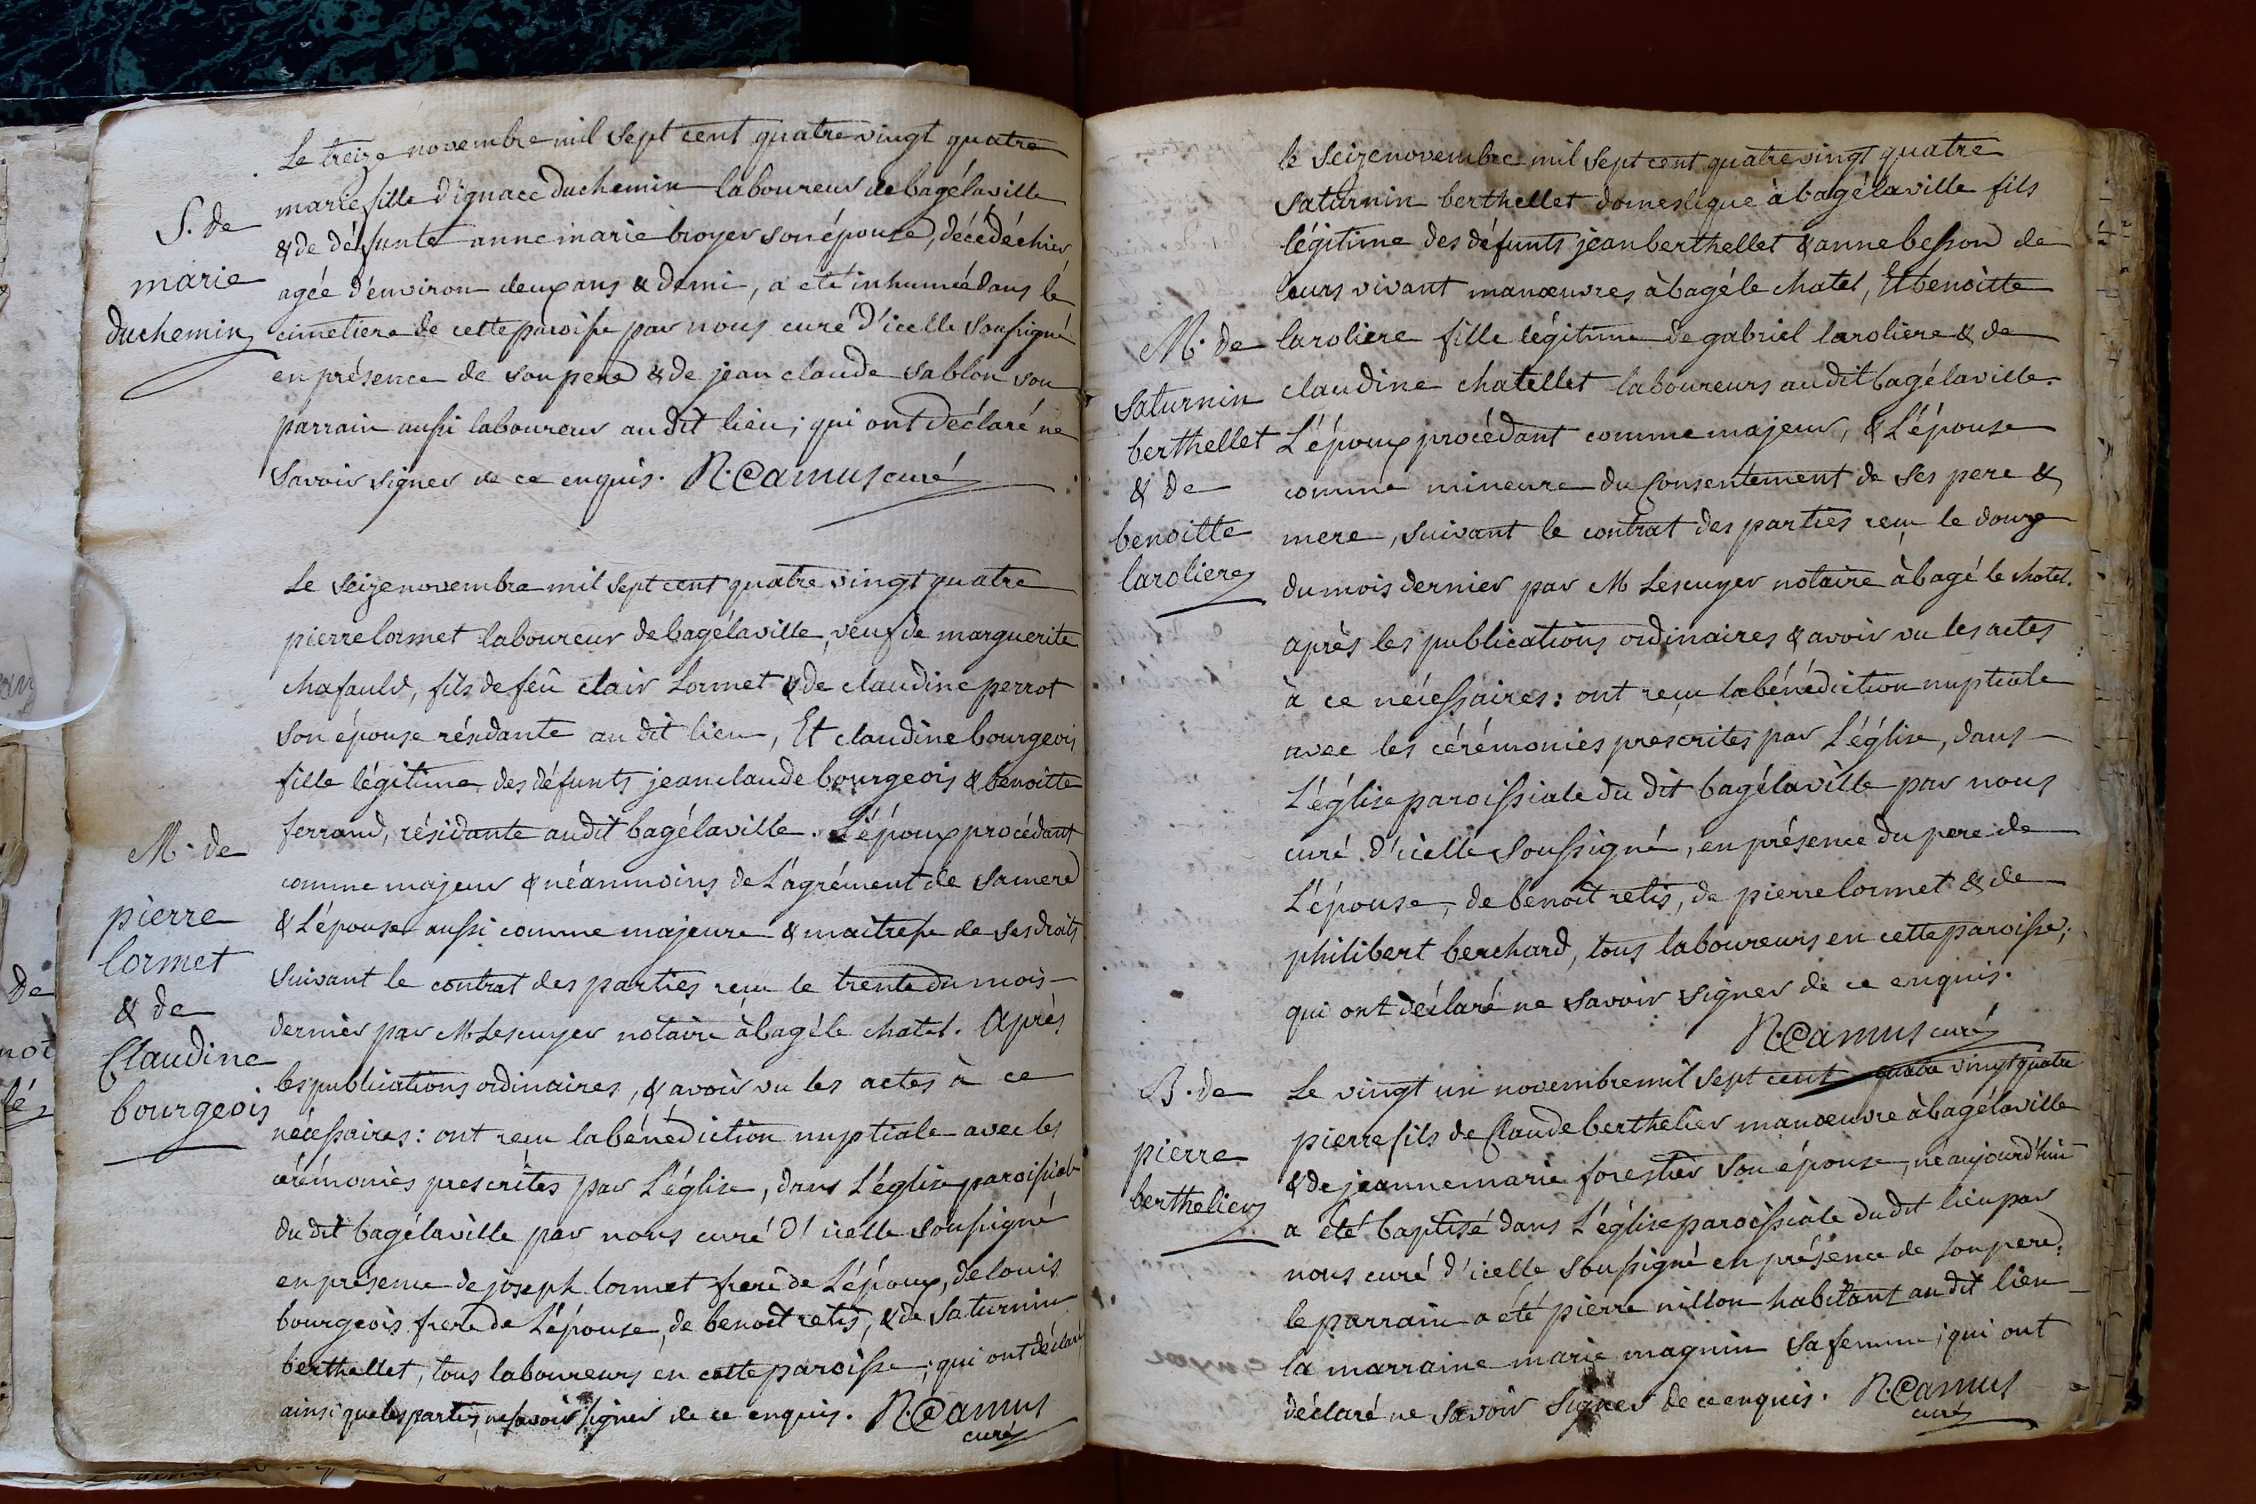 S. de
marie
duchemin
Le treize novembre mil sept cent quatre vingt quatre
marie fille d'ignace duchemin laboureur de bagélaville
& de défunte anne marie broyer son épouse, décédée hier
agée d'environ deux ans & demi, a eté inhumée dans le
cimetiere de cette paroisse par nous curé d'icelle soussigné
en présence de son pere & de jean claude sablon son
parrain aussi laboureur au dit lieu; qui ont déclaré ne
savoir signer de ce enquis. N. Camus curé
M. de
pierre
lormet
& de
Claudine
bourgeois
Le seize novembre mil sept cent quatre vingt quatre
pierre lormet laboureur de bagélaville, veuf de marguerite
chafauld, fils de feû clair Lormet & de claudine perrot
son épouse résidante au dit lieu, Et claudine bourgeois
fille légitime des défunts jean claude bourgeois & benoitte
ferrand, résidante au dit bagélaville. L'époux procédant
comme majeur & néanmoins de L'agrément de sa mere
& L'épouse aussi comme majeure & maitresse de ses droits
suivant le contrat des parties reçu le trente du mois
dernier par M Lescuyer notaire à bagé le chatel. Après
les publications ordinaires, & avoir vu les actes à ce
nécessaires: ont reçu la bénédiction nuptiale avec les
cérémonies prescrites par L'église, dans L'église paroissiale
du dit bagélaville par nous curé d'icelle soussigné
en présence de joseph lormet frere de L'époux, de louis
bourgeois frere de L'épouse, de benoit retis, & de Saturnin
berthellet, tous laboureurs en cette paroisse; qui ont déclaré
ainsi que les parties ne savoir signer de ce enquis. N. Camus
curé
M. de
Saturnin
berthellet
& de
benoitte
laroliere
le seize novembre mil sept cent quatre vingt quatre
Saturnin berthellet domestique à bagélaville fils
légitime des défunts jean berthellet & anne besson de
leurs vivant manœuvres à bagé le chatel, Et benoitte
laroliere fille légitime de gabriel laroliere & de
claudine chatellet laboureurs au dit bagélaville.
L'époux procédant comme majeur, & L'épouse
comme mineure du Consentement de ses pere &
mere, suivant le contrat des parties reçu le douze
du mois dernier par M Lescuyer notaire à bagé le chatel.
après les publications ordinaires & avoir vu les actes
à ce nécessaires: ont reçu la bénédiction nuptiale
avec les cérémonies prescrites par L'église, dans
L'église paroissiale du dit bagélaville par nous
curé d'icelle soussigné, en présence du pere de
L'épouse, de benoit retis, de pierre lormet & de
philibert berchard, tous laboureurs en cette paroisse;
qui ont déclaré ne savoir signer de ce enquis.
N. Camus curé
B. de
pierre
berthelier
Le vingt un novembre mil sept cent quatre vingt quatre
pierre fils de Claude berthelier manœuvre à bagélaville
& de jeanne marie forestier son épouse, né aujourd'hui
a été baptisé dans L'église paroissiale du dit lieu par
nous curé d'icelle soussigné en présence de son pere:
le parrain a été pierre nillon habitant au dit lieu
la marraine marie magnin sa femme; qui ont
déclaré ne savoir signer de ce enquis. N. Camus
curé